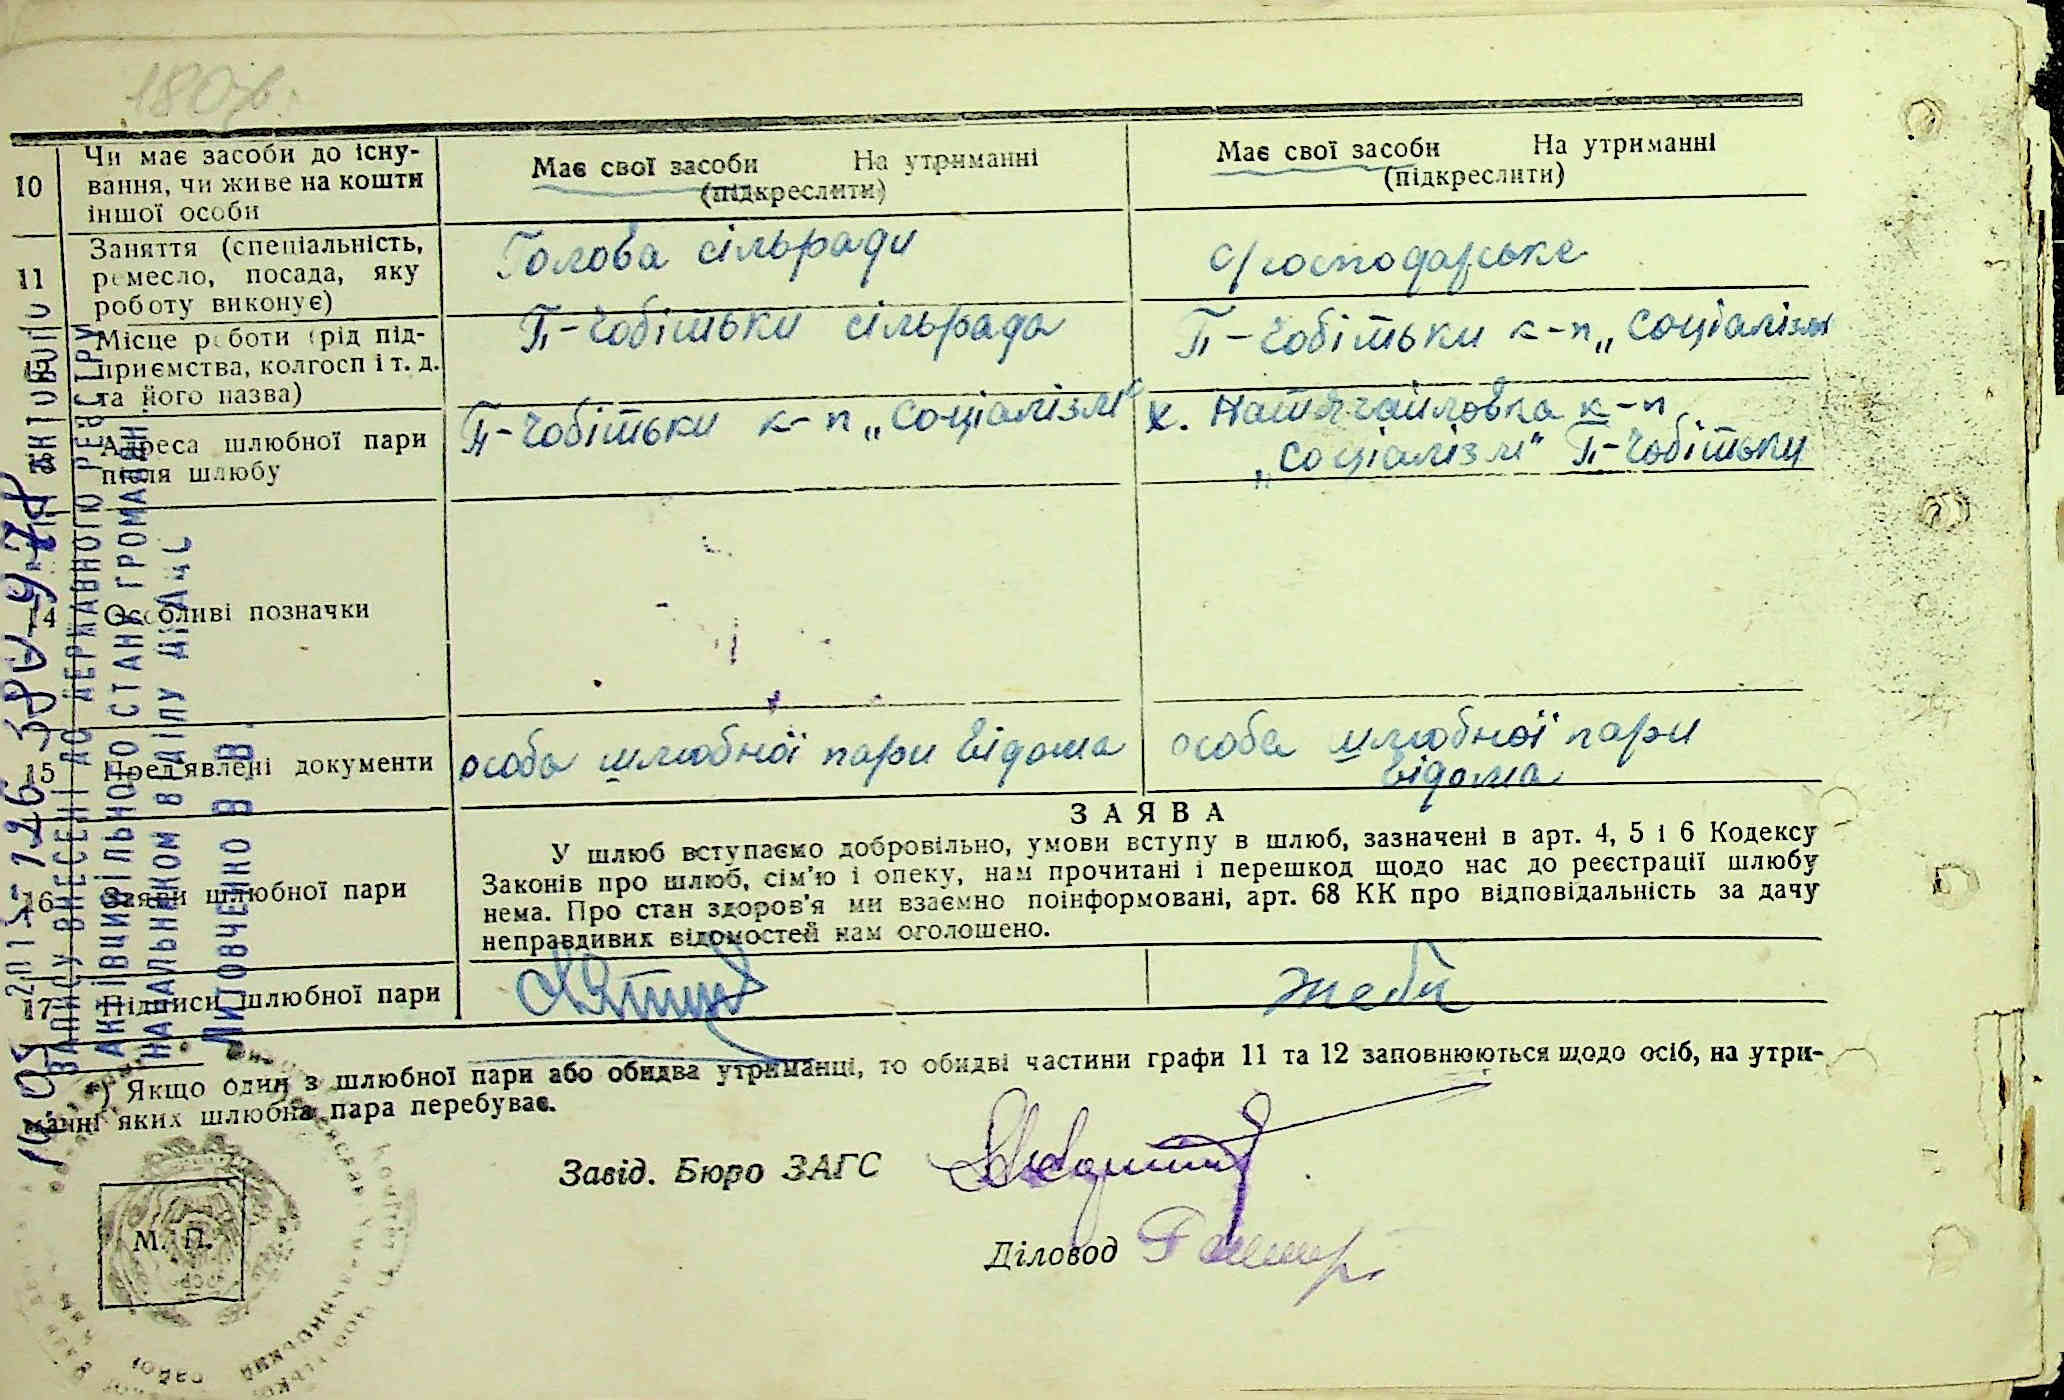 180зв.
10
Чи має засоби до існу-
вання, чи живе на кошти
іншої особи
Має свої засоби На утриманні
(підкреслити)
Має свої засоби На утриманні
(підкреслити)
11
Заняття (спеціальність,
ремесло, посада, яку
роботу виконує)
Голова сільради
с/господарське
Місце роботи (рід під-
приємства, колгосп і т. д.
та його назва)
П-Чобітьки сільрада
П-Чобітьки к-п „Соціалізм
Адреса шлюбної пари
після шлюбу
П-Чобітьки к-п „Соціалізм"
х. к-п
„Соціалізм" П-Чобітьки
14
Особливі позначки
15
Пред'явлені документи
особа шлюбної пари відома
особа шлюбної пари
відома
16
Заяви шлюбної пари
ЗАЯВА
У шлюб вступаємо добровільно, умови вступу в шлюб, зазначені в арт. 4, 5 і 6 Кодексу
Законів про шлюб, сім'ю і опеку, нам прочитані і перешкод щодо нас до реєстрації шлюбу
нема. Про стан здоров'я ми взаємно поінформовані, арт. 68 КК про відповідальність за дачу
неправдивих відомостей нам оголошено.
17
Підписи шлюбної пари
*) Якщо один з шлюбної пари або обидва утриманці, то обидві частини графи 11 та 12 заповнюються щодо осіб, на утри-
манні яких шлюбна пара перебуває.
Завід. Бюро ЗАГС
Діловод
М. П.
ЗАПИСУ ВНЕСЕНІ ДО ДЕРЖАВНОГО РЕЄСТРУ
АКТІВ ЦИВІЛЬНОГО СТАНУ ГРОМАДЯН
НАЧАЛЬНИКОМ ВІДДІЛУ
ЛИТОВЧЕНКО В. В.